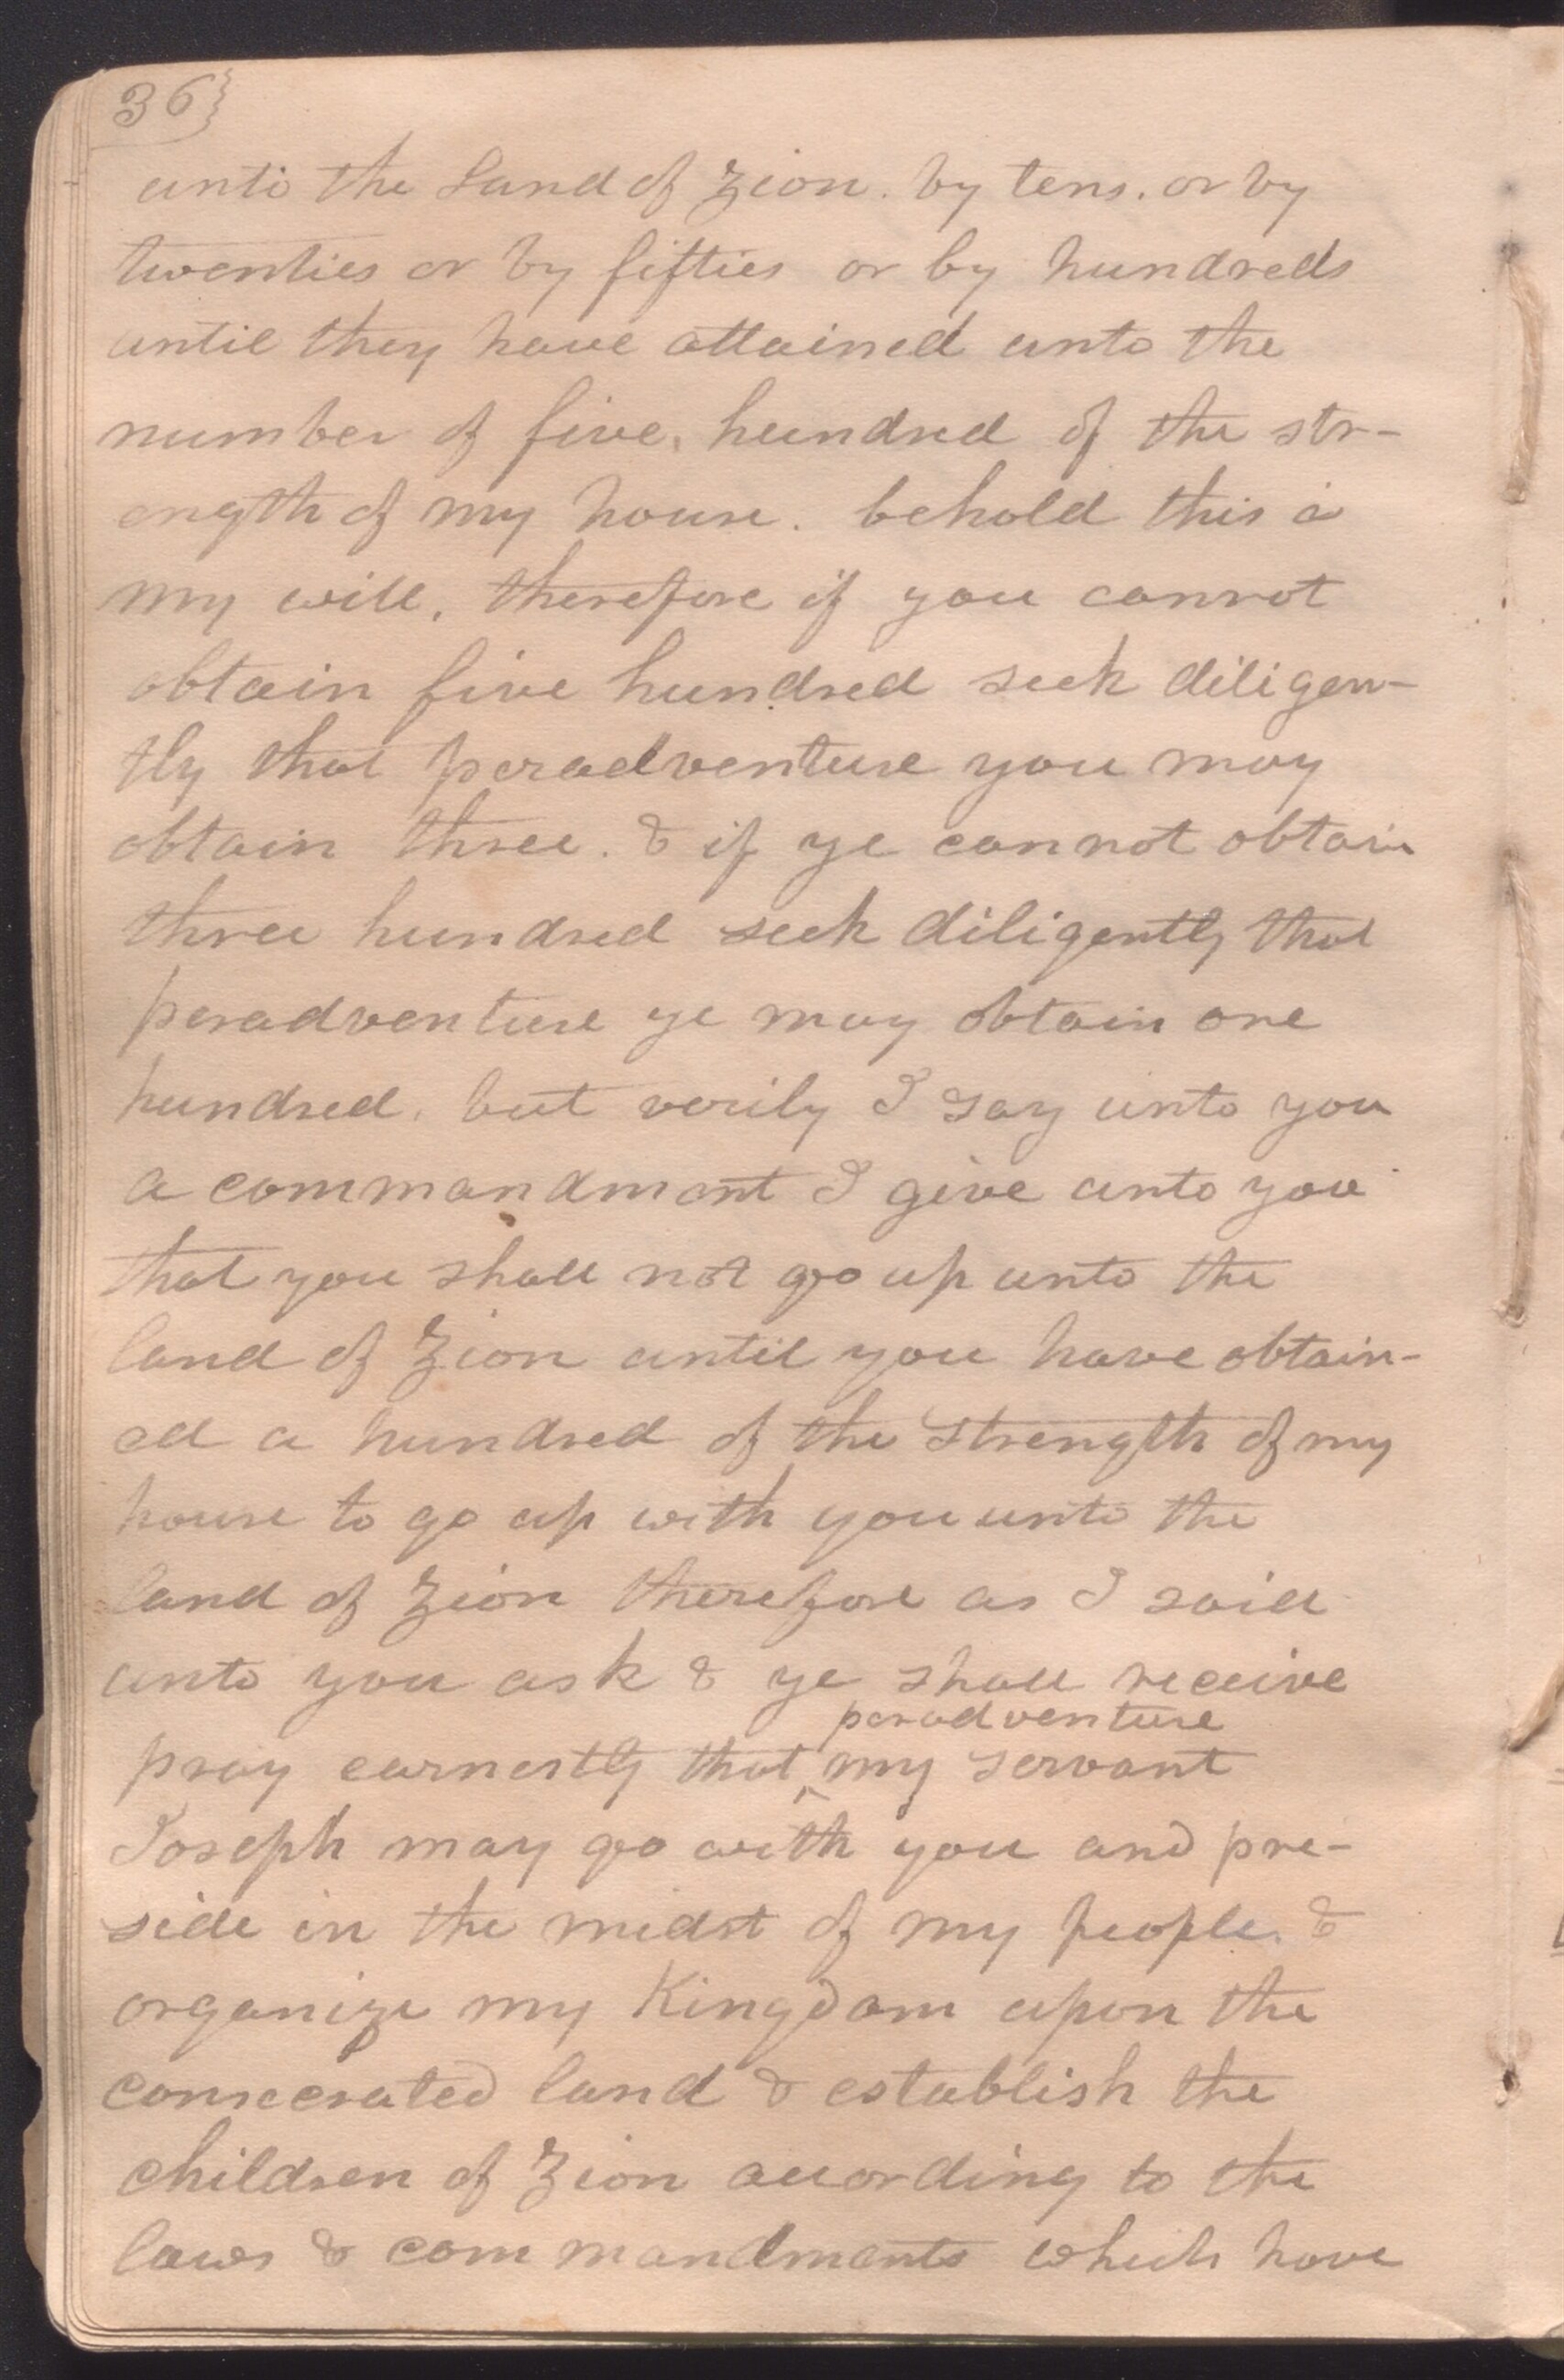 36}
unto the Land of Zion. by tens. or by
twenties or by fifties or by hundreds
until they have attained unto the
number of five, hundred of the str-
ength of my house. behold this is
my will, therefore if you cannot
obtain five hundred seek diligen-
tly that peradventure you may
obtain three. & if ye cannot obtain
three hundred seek diligently that
peradventure ye may obtain one
hundred. but verily I say unto you
a commandment I give unto you
that you shall not go up unto the
land of Zion until you have obtain-
ed a hundred of the Strength of my
house to go up with you unto the
land of Zion therefore as I said
unto you ask & ye shall receive
peradventure
pray earnestly that ^ my servant
Joseph may go with you and pre-
side in the midst of my people. &
organize my Kingdom upon the
consecrated land & establish the
children of Zion according to the
laws & commandments which have